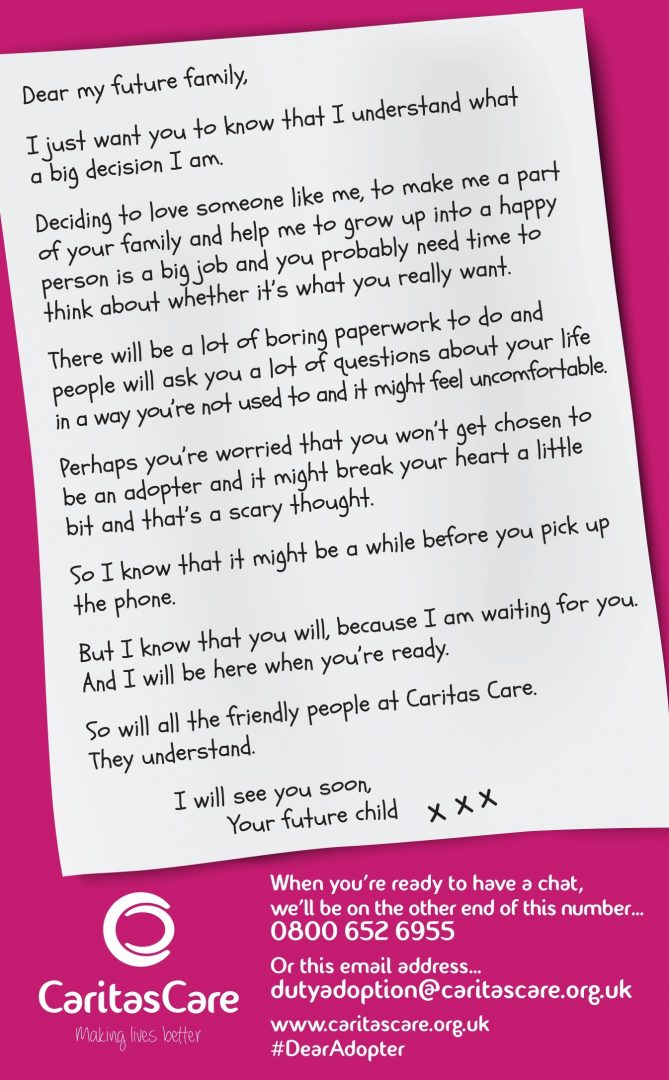 Dear my future family,
I just want you to know that I understand what
a big decision I am.
Deciding to love someone like me, to make me a part
of your family and help me to grow up into a happy
person is a big job and you probably need time to
think about whether it's what you really want.
There will be a lot of boring paperwork to do and
people will ask you a lot of questions about your life
in a way you're not used to and it might feel uncomfortable.
Perhaps you're worried that you won't get chosen to
be an adopter and it might break your heart a little
bit and that's a scary thought.
So I know that it might be a while before you pick up
the phone.
But I know that you will, because I am waiting for you.
And I will be here when you're ready.
So will all the friendly people at Caritas Care.
They understand.
I will see you soon,
Your future child x x x
When you're ready to have a chat,
we'll be on the other end of this number...
0800 652 6955
Or this email address...
dutyadoption@caritascare.org.uk
www.caritascare.org.uk
#DearAdopter
CaritasCare
Making lives better